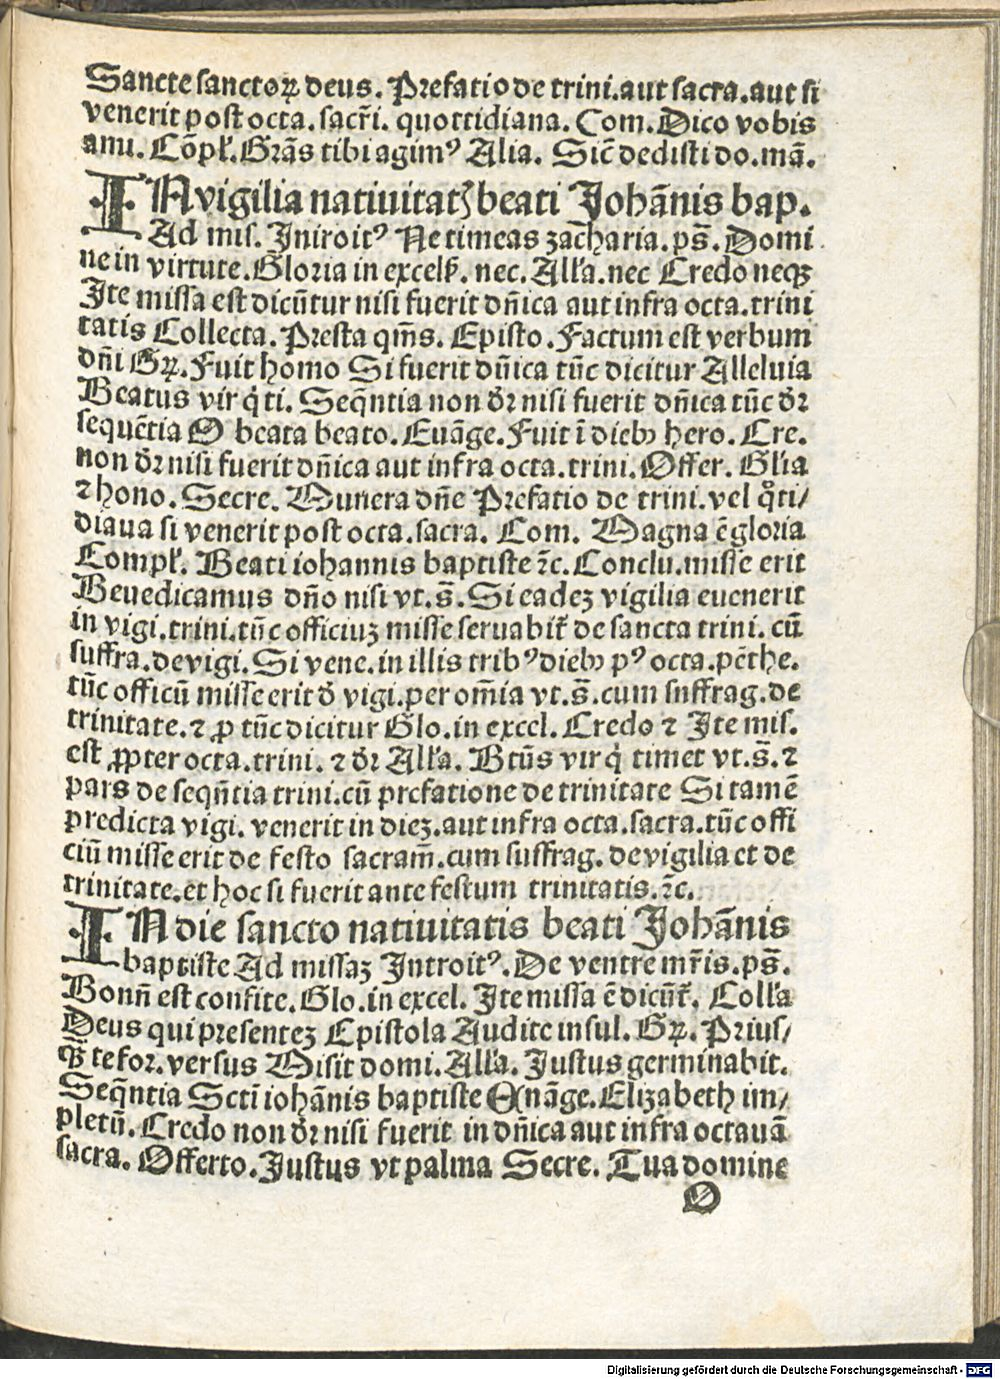 Sancte sanctoꝝ deus. Prefatio de trini. aut sacra. aut si
venerit post octa. sacr̃i. quottidiana. Com. Dico vobis
anu. Cõpl̃. Grãs tibi agimꝰ Alia. Sic̃ dedisti do. mã.
IN vigilia natiuitatꝭ beati Johãnis bap.
Ad mis. Iniroitꝰ Ne timeas zacharia. ps̃. Domi
ne in virtute. Gloria in excelß. nec. All'a. nec Credo neqꝫ
Ite missa est dicũtur nisi fuerit dñica aut infra octa. trini
tatis Collecta. Presta qm̃s. Episto. Factum est verbum
dñi Gꝝ. Fuit homo Si fuerit dñica tũc dicitur Alleluia
Beatus vir q̇ ti. Seq̃ntia non dr̃ nisi fuerit dñica tũc dr̃
sequẽtia O beata beato. Euãge. Fuit ĩ diebꝫ hero. Cre.
non dr̃ nisi fuerit dñica aut infra octa. trini. Offer. Gl'ia
⁊ hono. Secre. Munera dñe Prefatio de trini. vel q̊ti/
diaua si venerit post octa. sacra. Com. Magna ẽ gloria
Compl̃. Beati iohannis baptiste ⁊c̃. Conclu. misse erit
Beuedicamus dño nisi vt. s̃. Si eadeꝫ vigilia euenerit
in vigi. trini. tũc officiuꝫ misse seruabit̃ de sancta trini. cũ
suffra. de vigi. Si vene. in illis tribꝰ diebꝫ pꝰ octa. pẽthe.
tũc officũ misse erit đ vigi. per om̃ia vt. s̃. cum snffrag. de
trinitate. ⁊ ꝓ tũc dicitur Glo. in excel. Credo ⁊ Ite mis.
est ꝓpter octa. trini. ⁊ dr̃ All'a. Btũs vir q̇ timet vt. s̃. ⁊
pars de seqñtia trini. cũ prefatione de trinitate Si tamẽ
predicta vigi. venerit in dieꝫ. aut infra octa. sacra. tũc offi
ciũ misse erit de festo sacram̃. cum suffrag. de vigilia et de
trinitate. et hoc si fuerit ante festum trinitatis. ⁊c̃.
IN die sancto natiuitatis beati Johãnis
baptiste Ad missaꝫ Introitꝰ. De ventre mr̃is. ps̃.
Bonñ est confite. Glo. in excel. Ite missa ẽ dicũt̃. Coll'a
Deus qui presenteꝫ Epistola Audite insul. Gꝝ. Prius/
qꝫ̃ te for. versus Misit domi. All'a. Justus germinabit.
Seq̃ntia Scti iohãnis baptiste Euãge. Elizabeth im/
pletũ. Credo non dr̃ nisi fuerit in dñica aut infra octauã
sacra. Offerto. Justus vt palma Secre. Tua domine
O
Digitalisierung gefördert durch die Deutsche Forschungsgemeinschaft - DFG